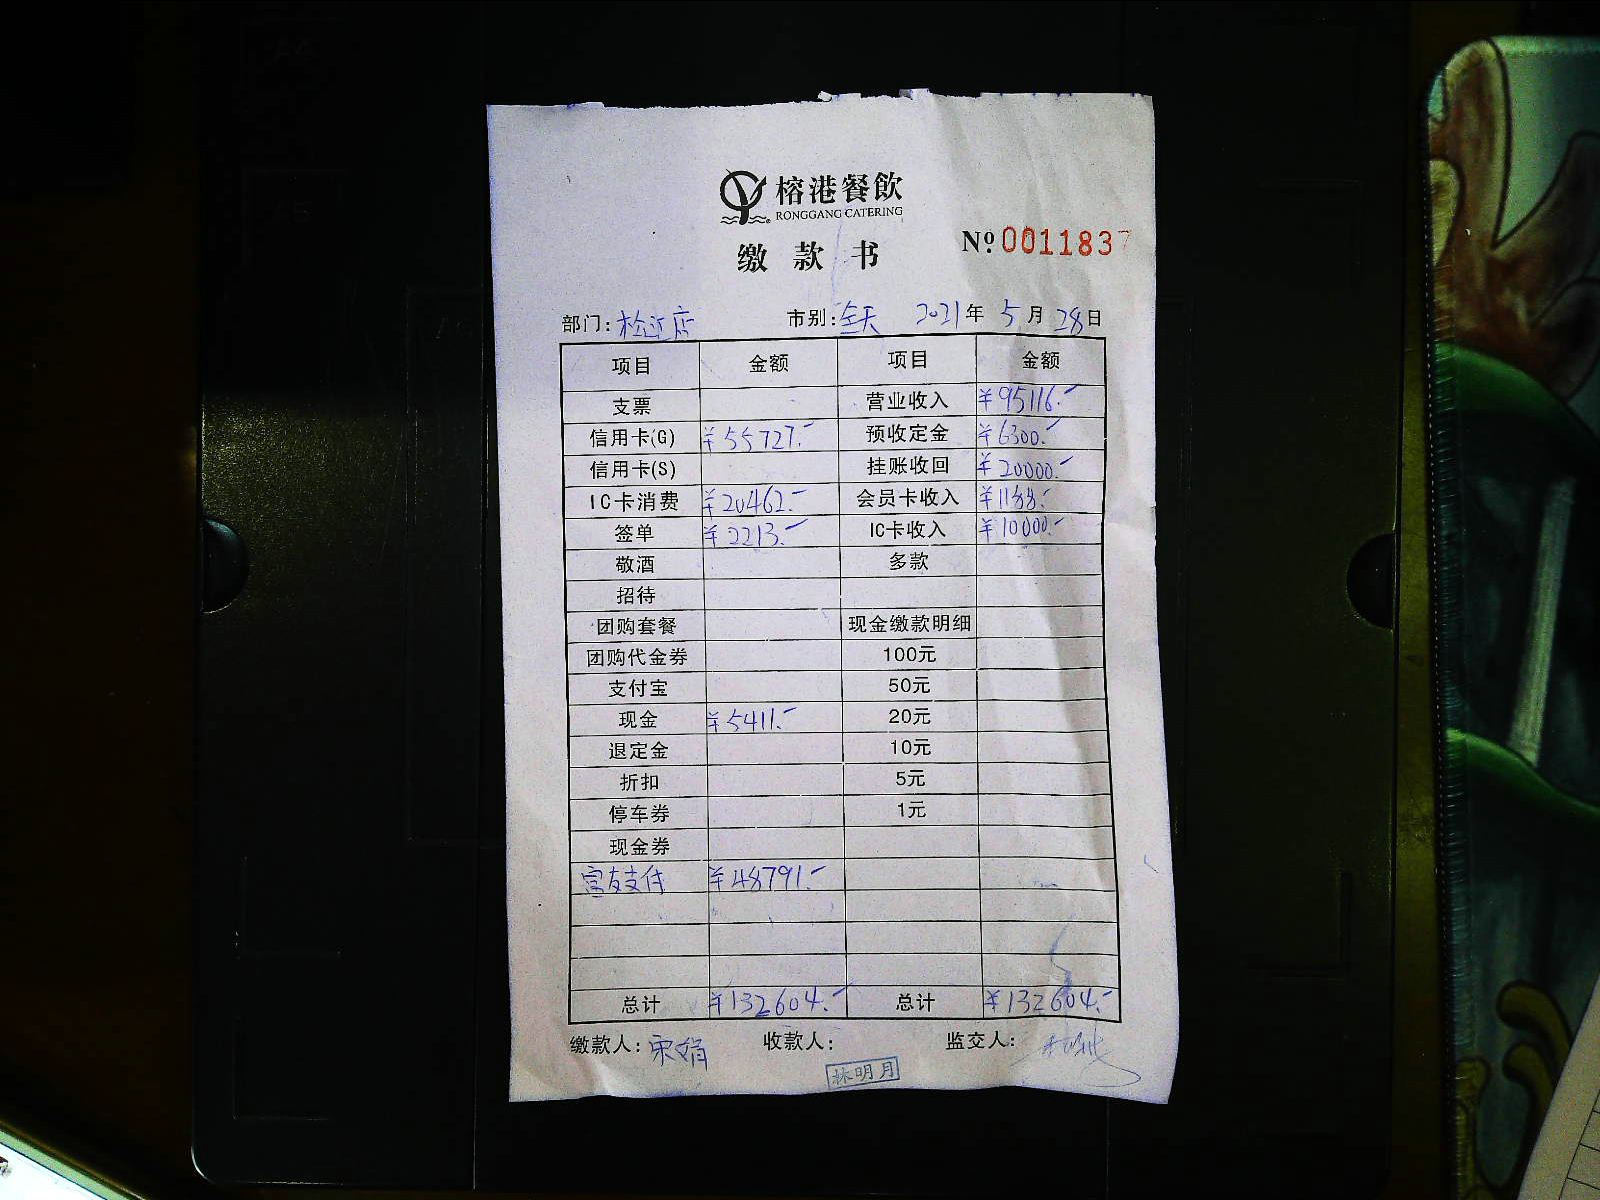 榕港餐飲
RONGGANG CATERING
缴款书 №0011837
部门: 松江店 市别: 全天 2021年5月28日
项目 金额 项目 金额
支票 营业收入 ¥95116.-
信用卡(G) ¥55727.- 预收定金 ¥6300.-
信用卡(S) 挂账收回 ¥20000.-
IC卡消费 ¥20462.- 会员卡收入 ¥1188.-
签单 ¥2213.- IC卡收入 ¥10000.-
敬酒 多款
招待
团购套餐 现金缴款明细
团购代金券 100元
支付宝 50元
现金 ¥5411.- 20元
退定金 10元
折扣 5元
停车券 1元
现金券
富友支付 ¥48791.-
总计 ¥132604.- 总计 ¥132604.-
缴款人: 宋娟 收款人: 监交人:
林明月